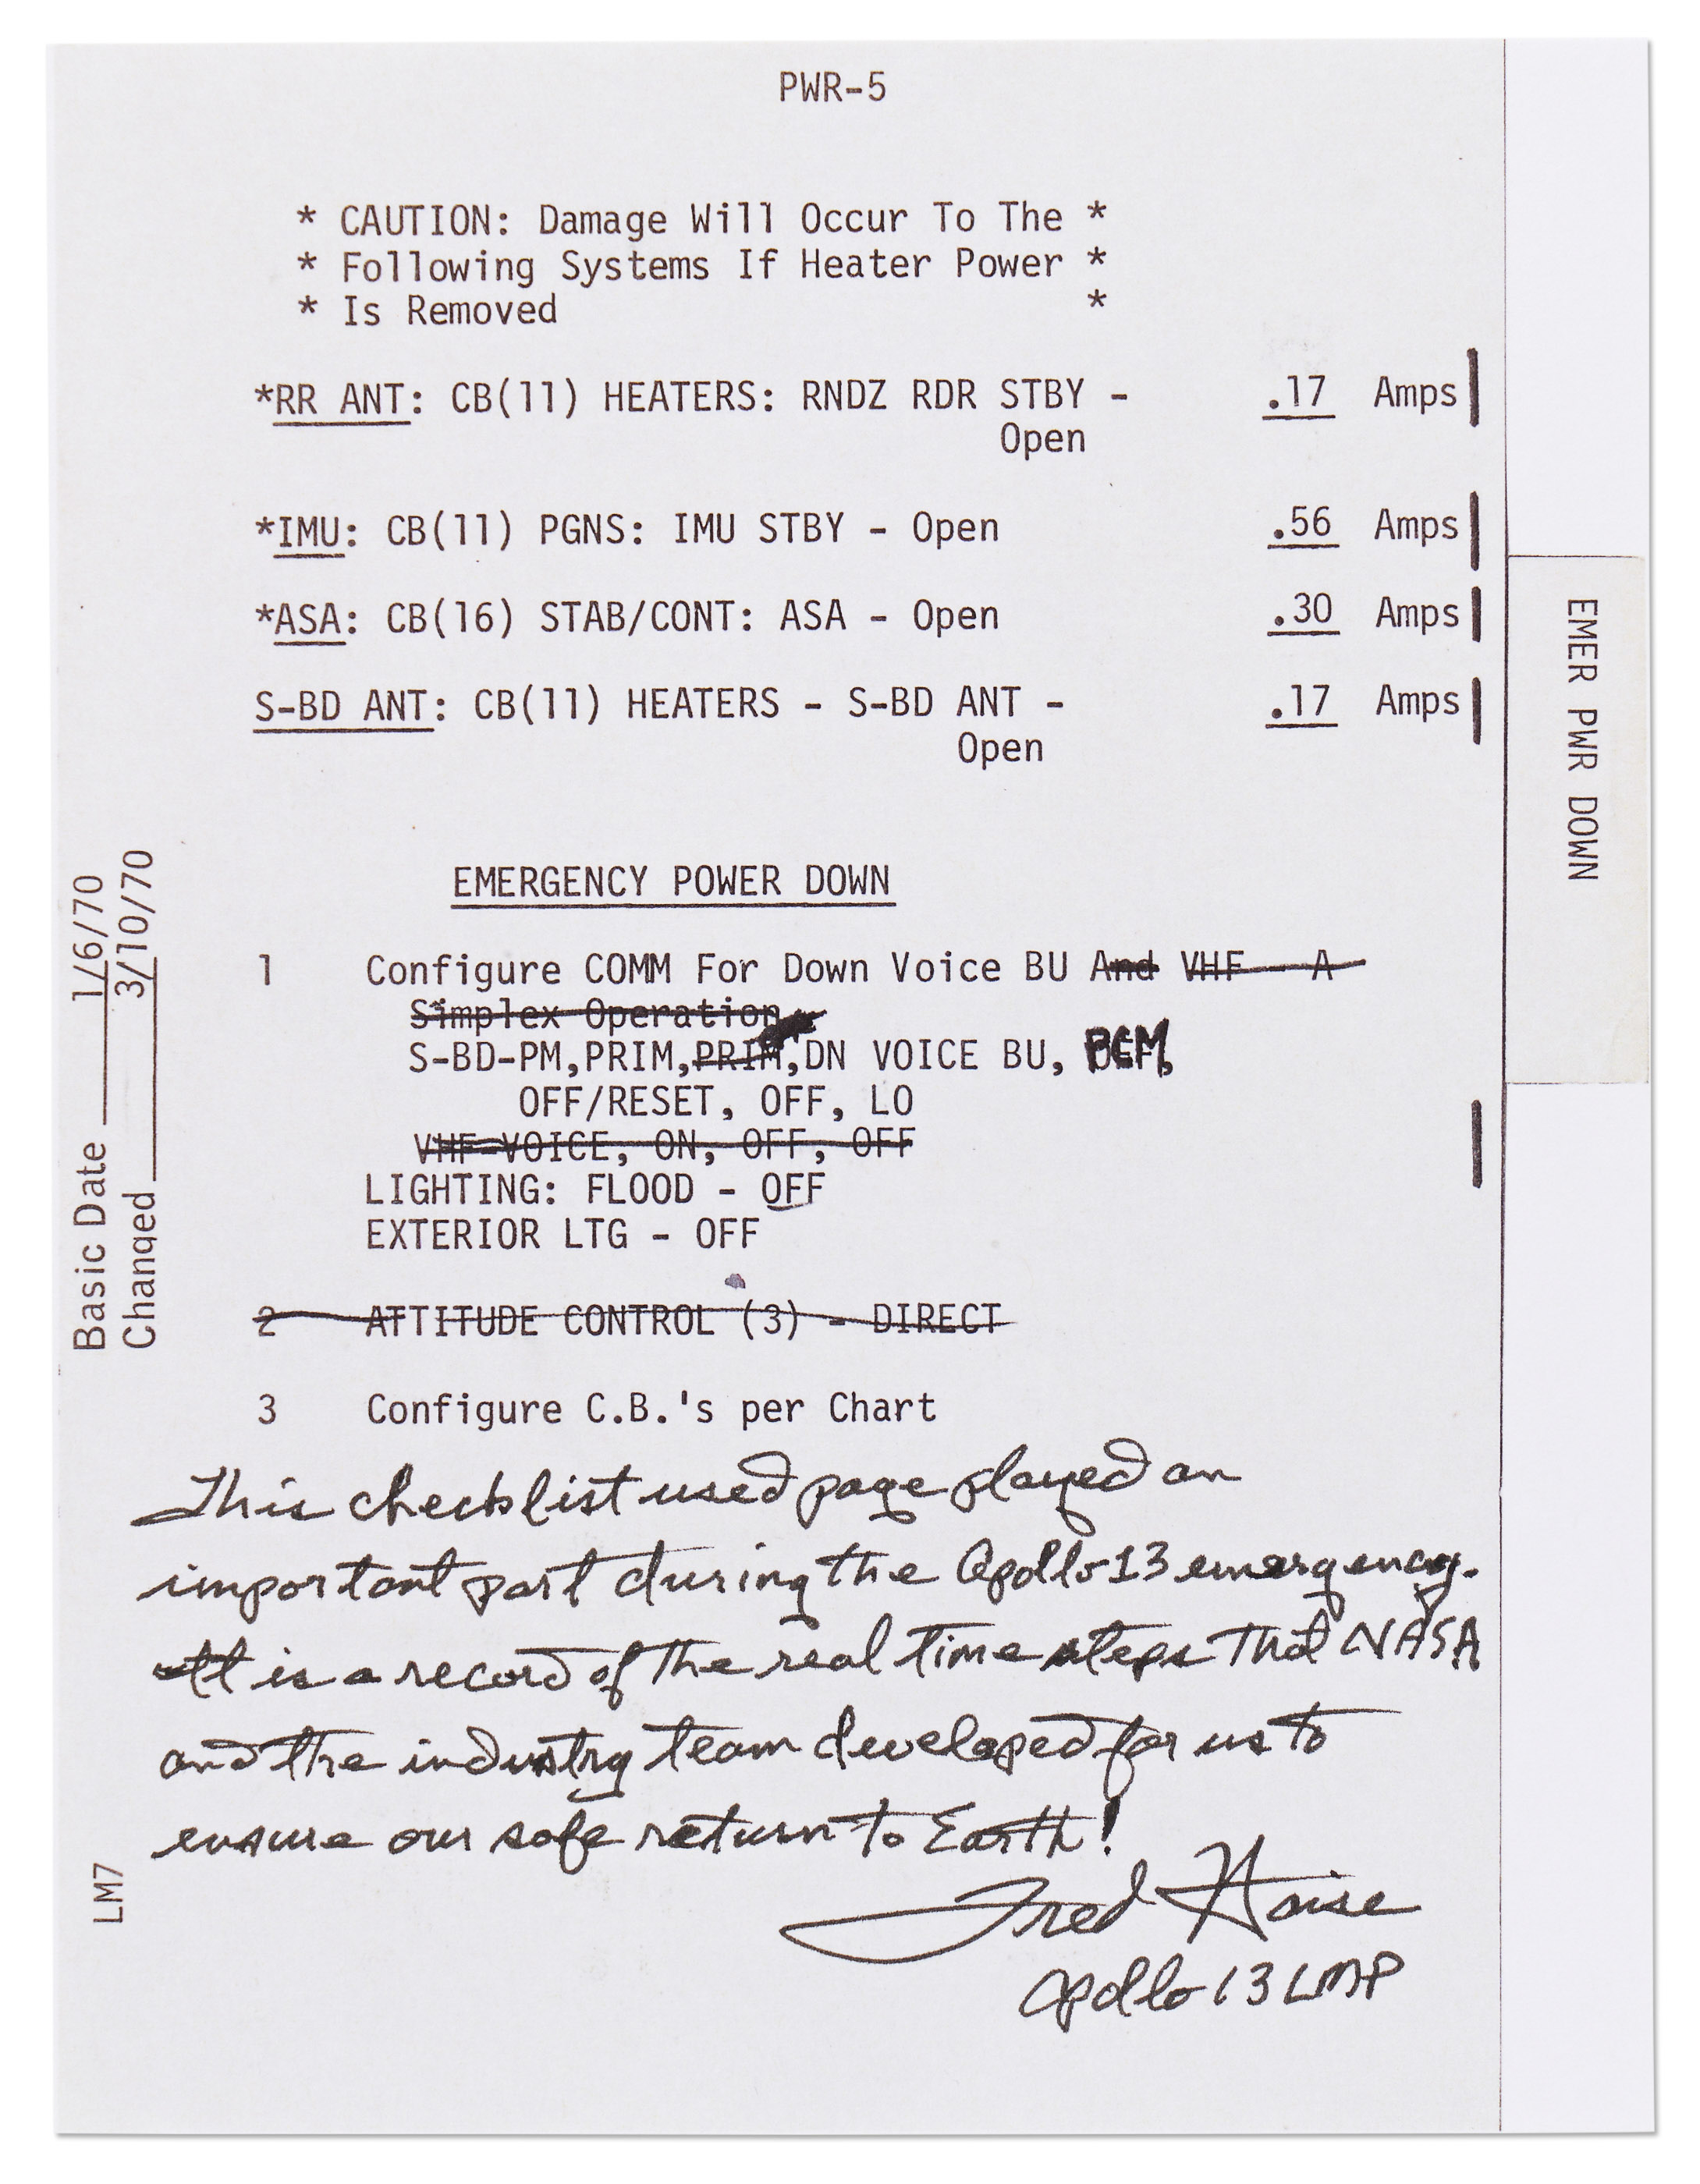 PWR-5
* CAUTION: Damage Will Occur To The *
* Following Systems If Heater Power *
* Is Removed *
*RR ANT: CB(11) HEATERS: RNDZ RDR STBY - .17 Amps
Open
*IMU: CB(11) PGNS: IMU STBY - Open .56 Amps
*ASA: CB(16) STAB/CONT: ASA - Open .30 Amps
S-BD ANT: CB(11) HEATERS - S-BD ANT - .17 Amps
Open
EMER PWR DOWN
EMERGENCY POWER DOWN
1 Configure COMM For Down Voice BU And VHF - A
Simplex Operation
S-BD-PM,PRIM,PRIM,DN VOICE BU,
OFF/RESET, OFF, LO
VHF-VOICE, ON, OFF, OFF
LIGHTING: FLOOD - OFF
EXTERIOR LTG - OFF
2 ATTITUDE CONTROL (3) - DIRECT
3 Configure C.B.'s per Chart
Basic Date 1/6/70
Changed 3/10/70
This checklist used page played an
important part during the Apollo 13 emergency.
It is a record of the real time steps that NASA
and the industry team developed for us to
ensure our safe return to Earth!
Fred Haise
Apollo 13 LMP
LM7